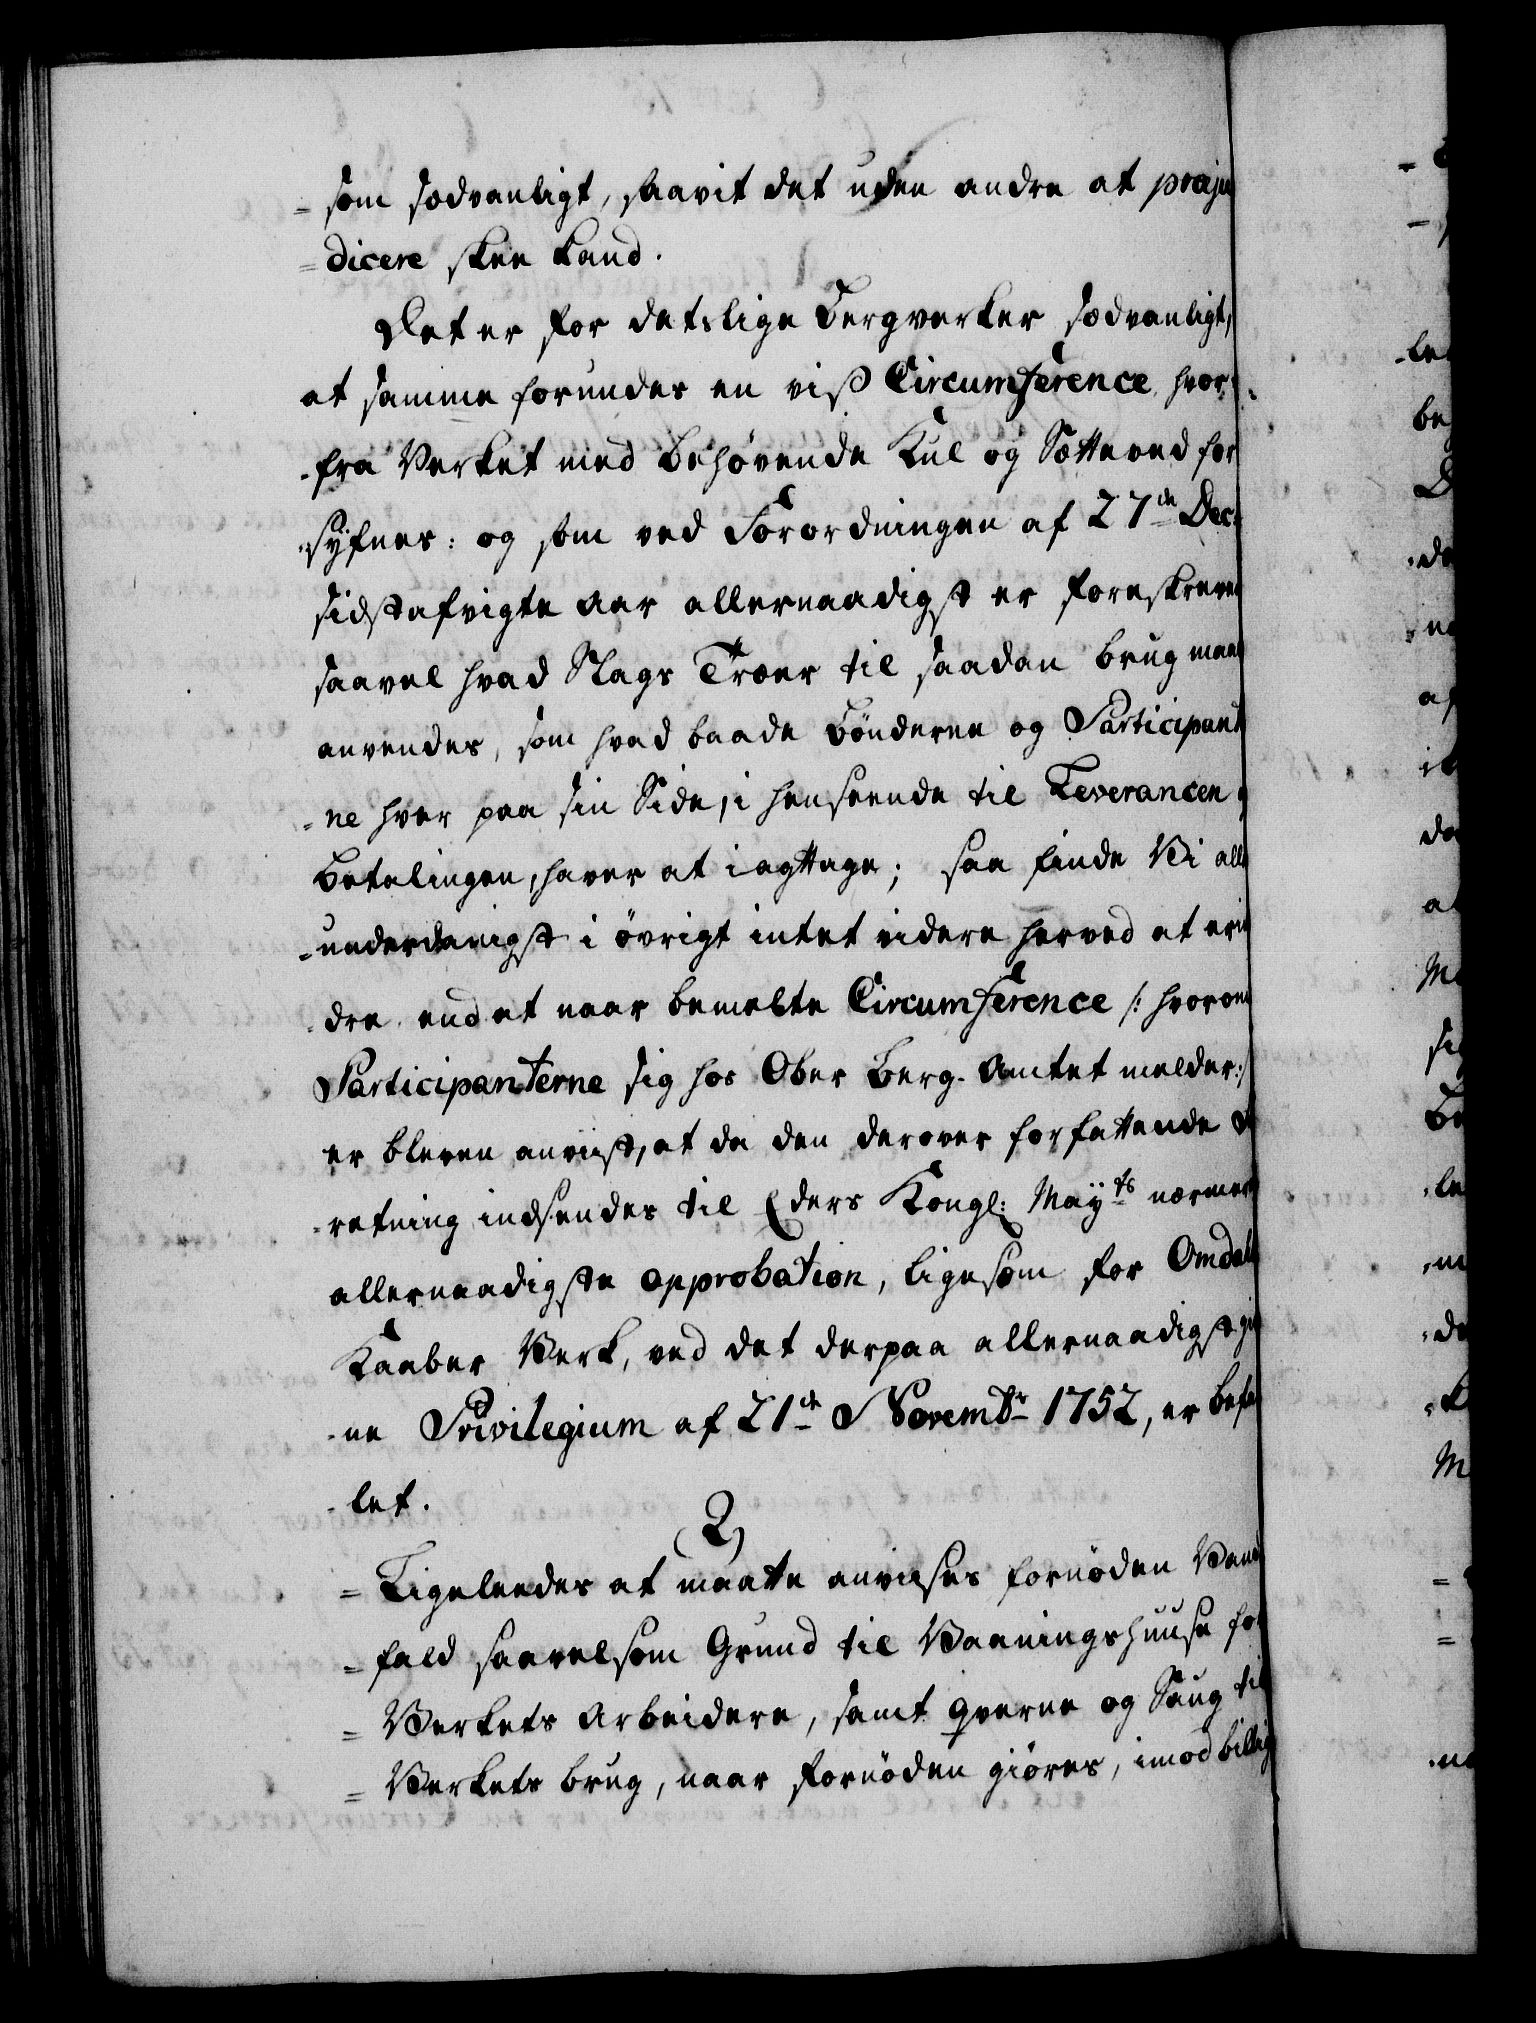 = som sædvanligt, saavit det uden andre at præju
= dicere skee kand.
Det er for detslige Bergverker sædvanligt,
at samme forundes en viß Circumference, hvor-
-fra Verket med behøvende Kul og Sætteved for
-syfnes: og som ved Forordningen af 27de Dec:
sidstafvigte Aar allernaadigst er foreskreve
saavel hvad Slags Træer til saadan brug maa
anvendes, som hvad baade Bønderne og Participant
-ne hver paa sin Side, i henseende til Leverancen
Betalingen, haver at iagttage; saa finde Vi aller
-underdanigst i øvrigt intet videre herved at erin
-dre end at naar bemelte Circumference /: hvorom
Participanterne sig hos Ober Berg-Amtet melder:/
er bleven anviist, at da den derover forfattende
-retning indsendes til Eders Kongl: Mayts nærmere
allernaadigste approbation, ligesom for Omdals
Kaaber Verk, ved det derpaa allernaadigst giv
-ne Privilegium af 21de Novembr 1752, er befa
-let.
2)
= Ligeleedes at maatte anviises fornøden Vand
= fald saavelsom Grund til Vaaningshuuse for
= Verkets Arbeidere, samt qverne og Saug til
= Verkets brug, naar fornøden giøres, imod billig